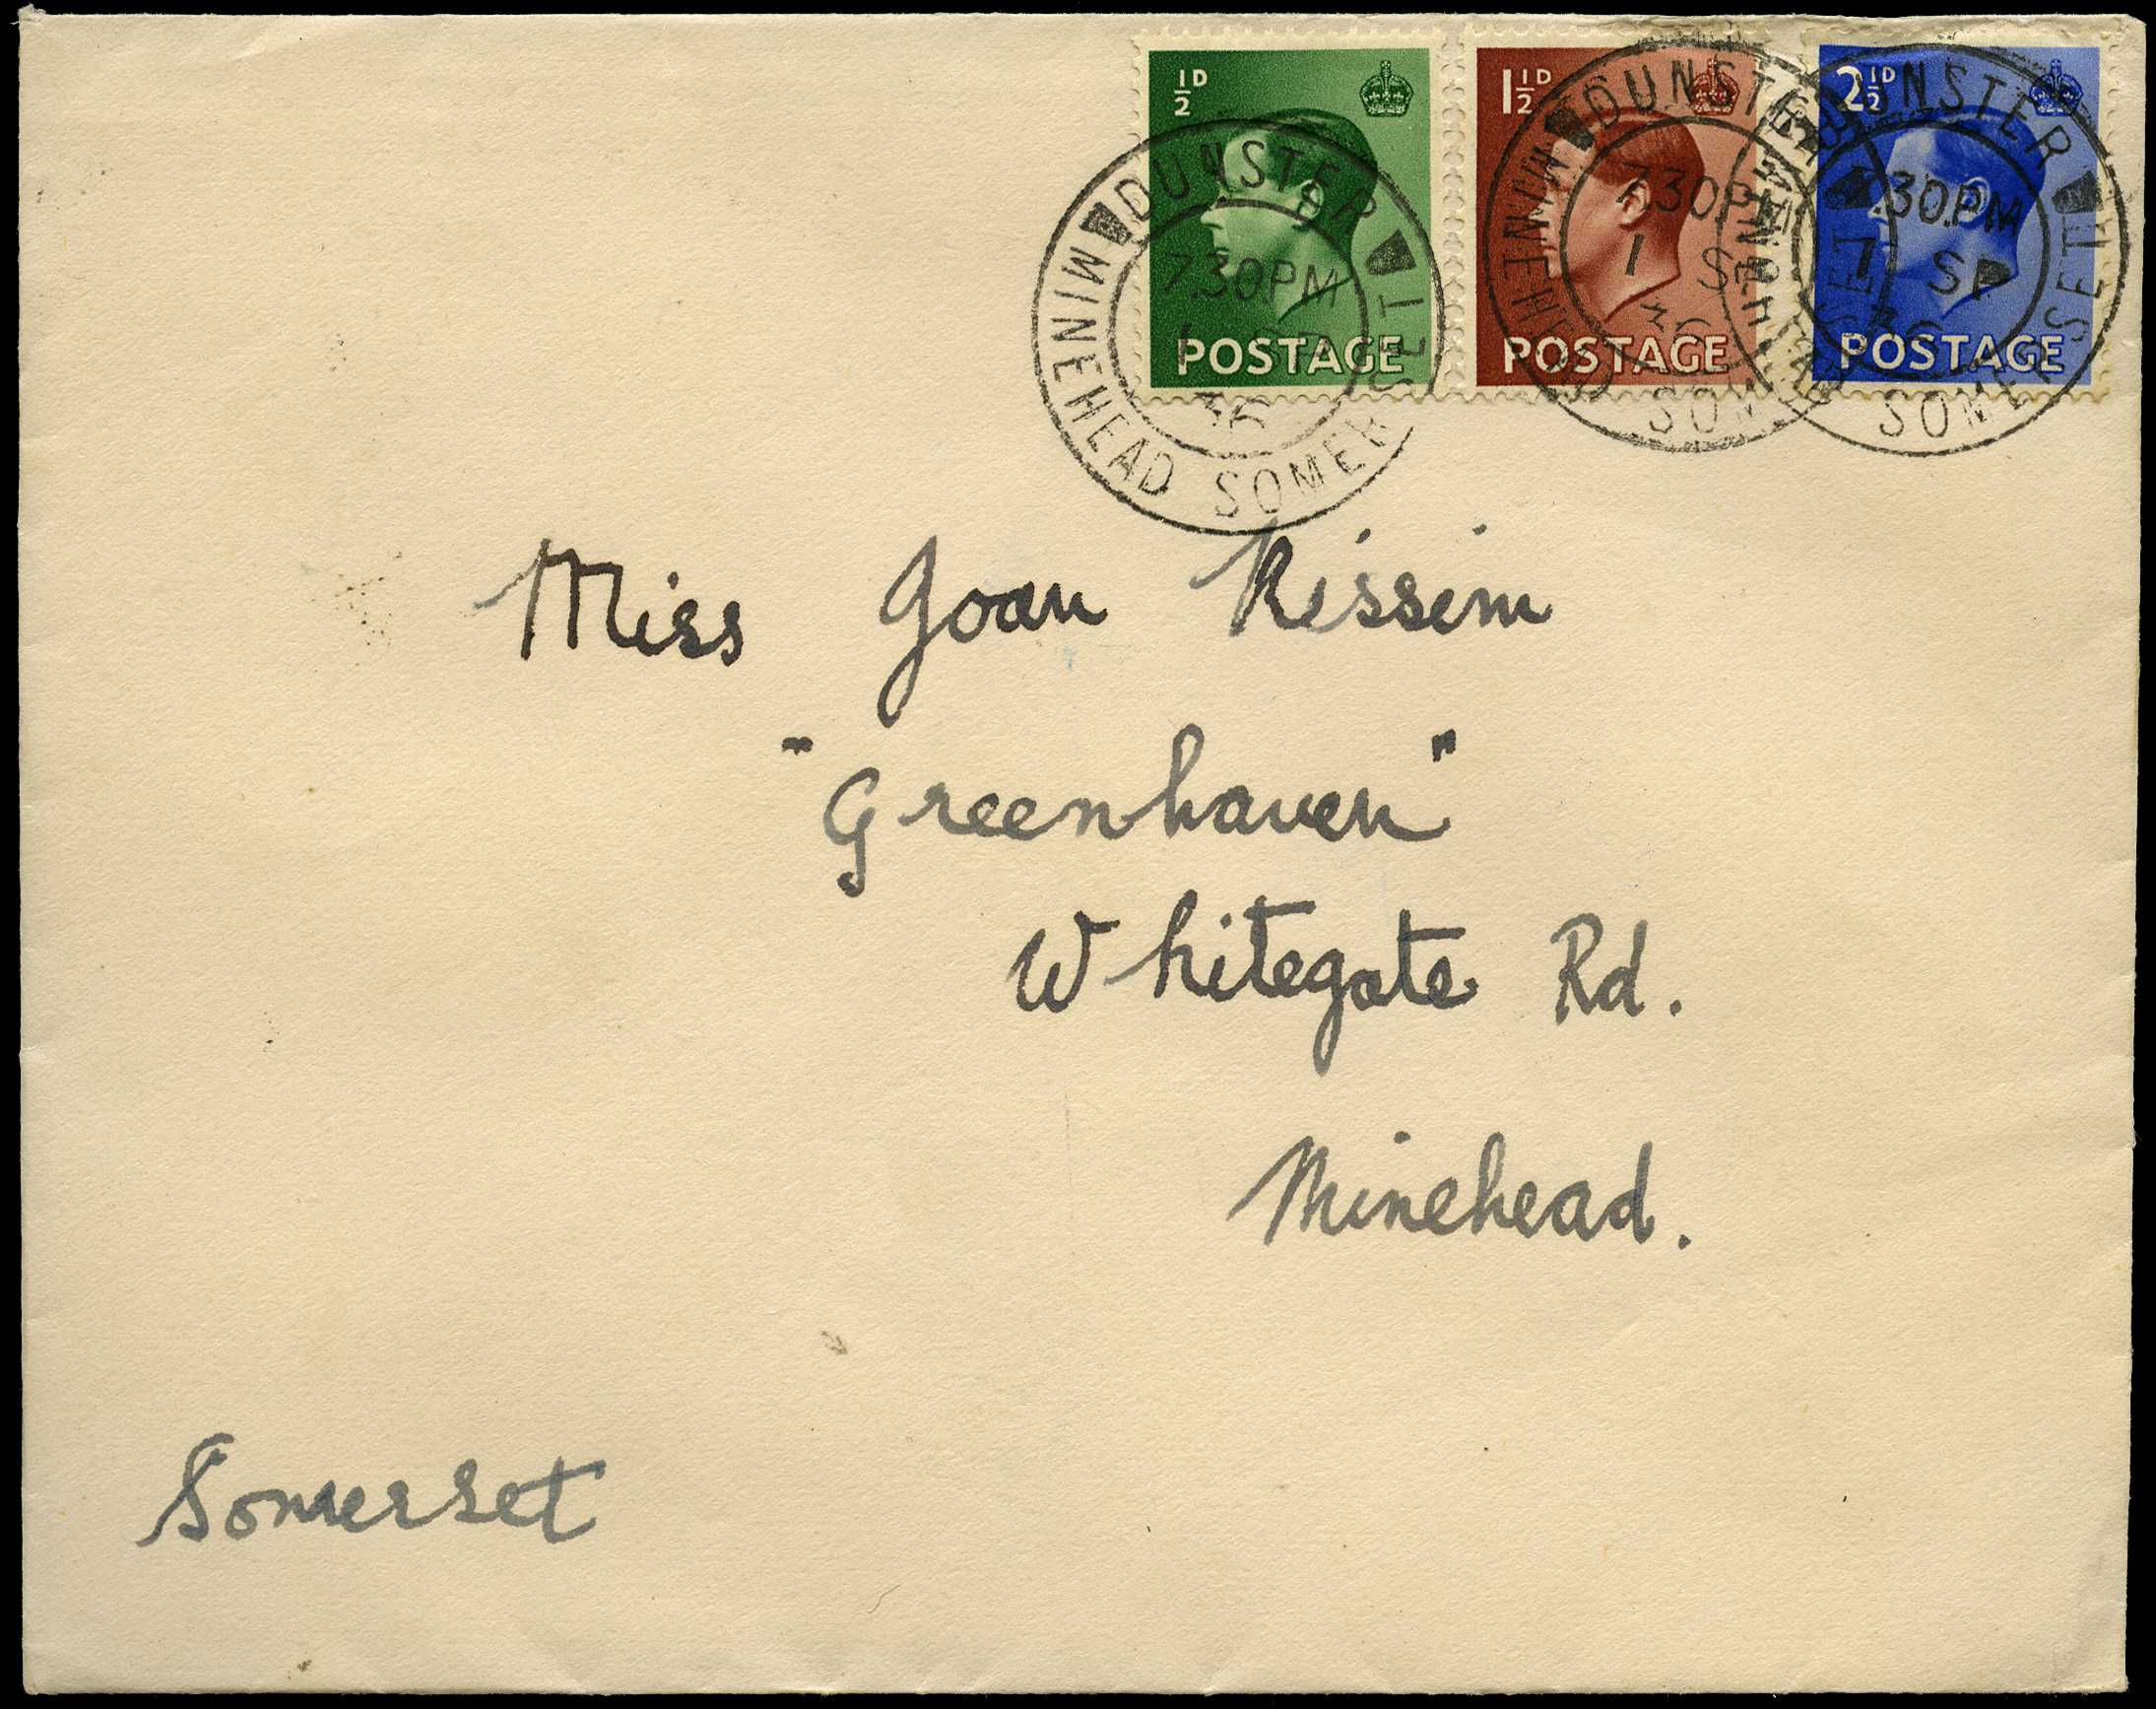 ½D
1½D
2½D
POSTAGE
POSTAGE
POSTAGE
DUNSTER
MINEHEAD SOMERSET
7.30PM
1 SP
36
DUNSTER
MINEHEAD SOMERSET
7.30PM
1 SP
36
DUNSTER
MINEHEAD SOMERSET
7.30PM
1 SP
36
Miss Joan Nissim
"Greenhaven"
Whitegate Rd.
Minehead.
Somerset